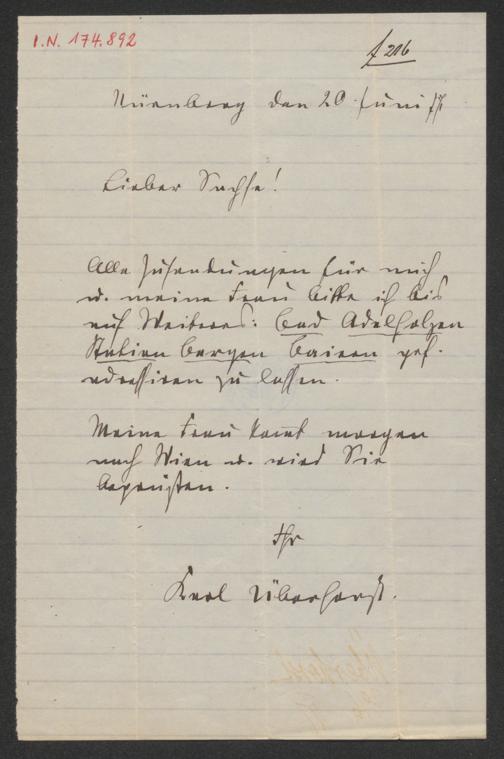 I.N. 174.892
f 216
Nürnberg den 20 Juni 77
Lieber Sachse!
Alle Zusendungen für mich
u. meine Frau bitte ich bis
auf Weiteres: Bad Adelholzen
Station Bergen Baiern gef.
adressiren zu lassen.
Meine Frau komt morgen
nach Wien u. wird Sie
begrüßen.
Ihr
Karl Überhorst.